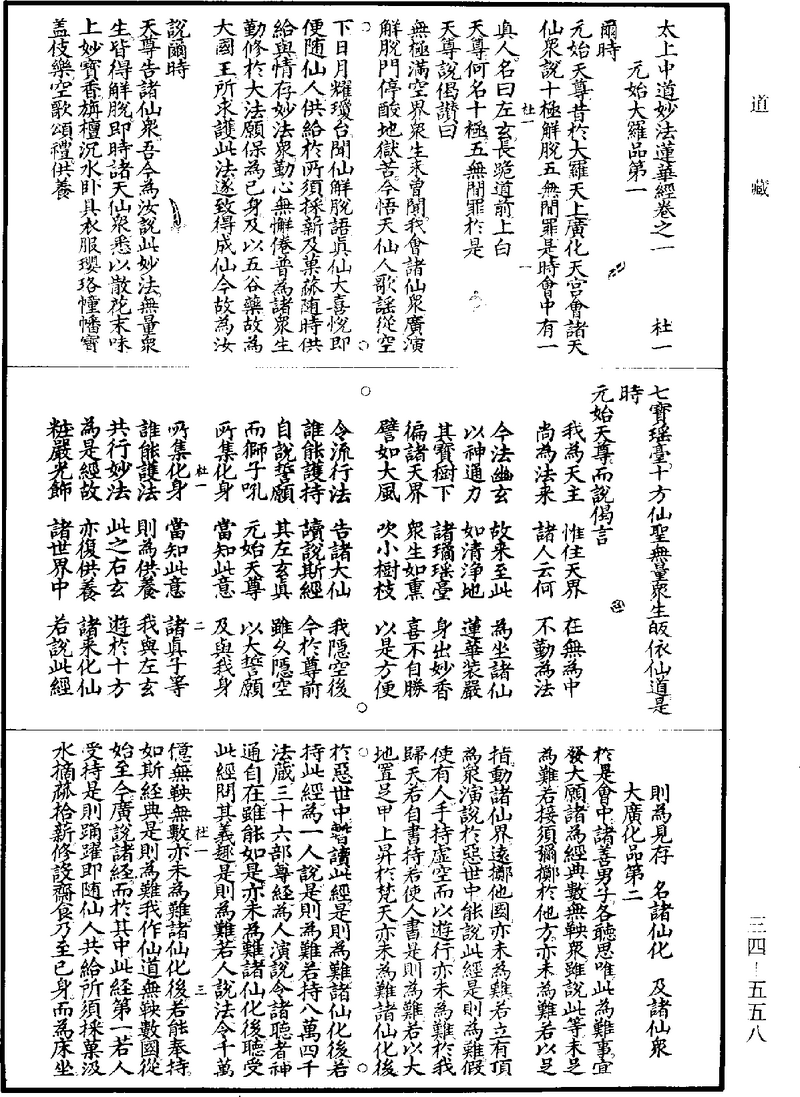 道藏
太上中道妙法蓮華經卷之一 杜一
元始大羅品第一
爾時
元始天尊昔於大羅天上廣化天宮會諸天
仙衆說十極解脫五無間罪是時會中有一
真人名曰左玄長跪道前上白
天尊何名十極五無間罪於是
天尊說偈讚曰
無極滿空界衆生未曾聞我會諸仙衆廣演
解脫門停酸地獄苦今悟天仙人歌謡從空
下日月耀瓊台聞仙解脫語真仙大喜悅即
便隨仙人供給於所須採薪及菓蓏隨時供
給與情存妙法衆勤心無懈倦普為諸衆生
勤修於大法願保為己身及以五谷藥故為
大國王所求護此法遂致得成仙今故為汝
說爾時
天尊告諸仙衆吾今為汝說此妙法無量衆
生皆得解脫即時諸天仙衆悉以散花末味
上妙寶香旃檀沉水卧具衣服瓔珞幢幡寶
蓋伎樂空歌頌禮供養
杜一 一
七寶瑶臺十方仙聖無量衆生皈依仙道是
時
元始天尊而說偈言
我為天主 惟住天界 在無為中
尚為法来 諸人云何 不勤為法
今法幽玄 故来至此 為坐諸仙
以神通力 如清浄地 蓮華装嚴
其寶樹下 諸璚瑶臺 身出妙香
徧諸天界 衆生如熏 喜不自勝
譬如大風 吹小樹枝 以是方便
令流行法 告諸大仙 我隱空後
誰能護持 讀說斯經 今於尊前
自說誓願 其左玄真 雖久隱空
而獅子吼 元始天尊 以大誓願
所集化身 當知此意 及與我身
杜一 二
所集化身 當知此意 諸真子等
誰能護法 則為供養 我與左玄
共行妙法 此之右玄 遊於十方
為是經故 亦復供養 諸来化仙
粧嚴光飾 諸世界中 若說此經
則為見存 名諸仙化 及諸仙衆
大廣化品第二
於是會中諸善男子各聽思唯此為難事宜
發大願諸為經典數無鞅衆雖說此等未足
為難若接須彌擲於他方亦未為難若以足
指動諸仙界遠擲他國亦未為難若立有頂
為衆演說於惡世中能說此經是則為難假
使有人手持虛空而以遊行亦未為難於我
歸天若自書持若使人書是則為難若以大
地置足甲上昇於梵天亦未為難諸仙化後
於惡世中暫讀此經是則為難諸仙化後若
持此經為一人說是則為難若持八萬四千
法蔵三十六部尊經為人演說令諸聽者神
通自在雖能如是亦未為難諸仙化後聽受
此經問其義趣是則為難若人說法令千萬
杜一 三
億無鞅無數亦未為難諸仙化後若能奉持
如斯經典是則為難我作仙道無鞅數國從
始至今廣說諸經而於其中此經第一若人
受持是則踊躍即随仙人共給所須採菓汲
水摘蓏拾薪修設齋食乃至已身而為床坐
三四一五五八